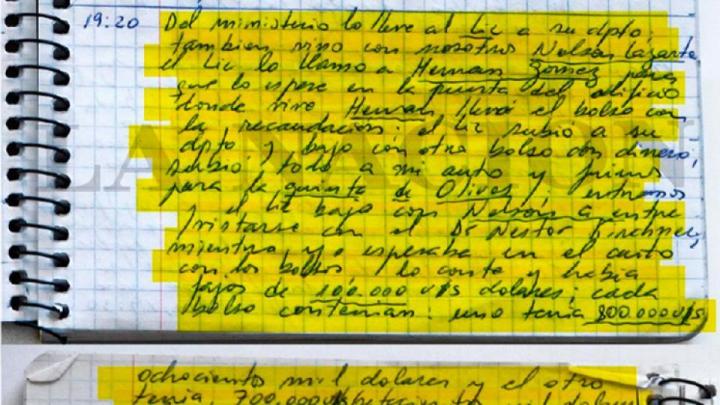 19:20 Del ministerio lo lleve al Lic a su dpto,
tambien vino con nosotros Nelson Lazarte
el Lic lo llamo a Hernan Gomez para
que lo espere en la puerta del edificio
donde vive Hernan llevó el bolso con
la recaudacion; el Lic subio a su
dpto y bajo con otro bolso con dinero,
subió todo a mi auto y fuimos
para la quinta de Olivos, entramos
y el Lic bajo con Nelson a entre
vistarse con el Dr Nestor Kirchner,
mientras yo esperaba en el auto
con los bolsos, lo conte y habia
fajos de 100.000 U$S dolares; cada
bolso contenian: uno tenia 800.000U$S,
ochocientos mil dolares y el otro
tenia 700.000U$S setecientos mil dolares
LA NACION